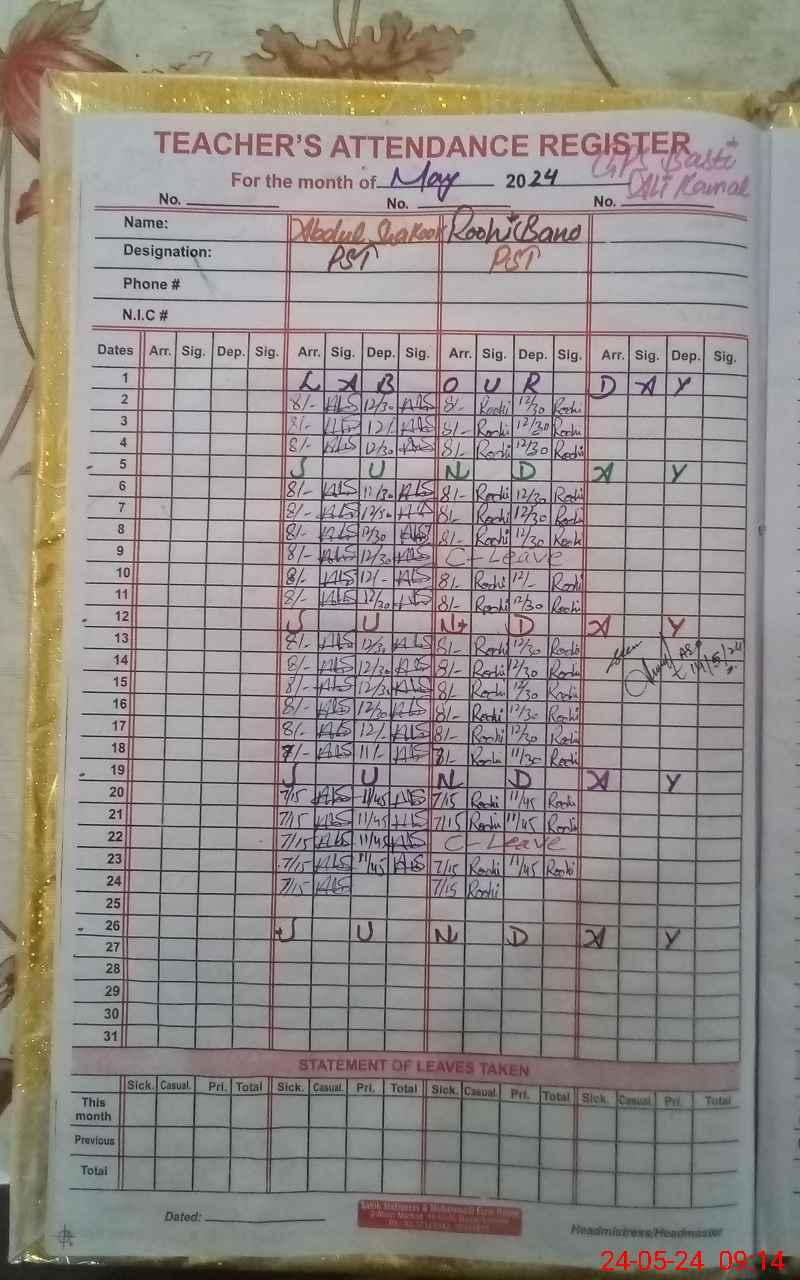 TEACHER'S ATTENDANCE REGISTER
GPS Basti
For the month of May 2024
Ali Kamal
No. No. No.
Name: Abdul Shakoor Roohi Bano
Designation: PST PST
Phone #
N.I.C #
Dates Arr. Sig. Dep. Sig. Arr. Sig. Dep. Sig. Arr. Sig. Dep. Sig. Arr. Sig. Dep. Sig.
1 L A B O U R D A Y
2 8/- ALS 12/30 ALS 8/- Roohi 12/30 Roohi
3 8/- ALS 12/ ALS 8/- Roohi 12/30 Roohi
4 8/- ALS 12/30 ALS 8/- Roohi 12/30 Roohi
5 S U N D A Y
6 8/- ALS 12/30 ALS 8/- Roohi 12/30 Roohi
7 8/- ALS 12/30 ALS 8/- Roohi 12/30 Roohi
8 8/- ALS 12/30 ALS 8/- Roohi 12/30 Roohi
9 8/- ALS 12/30 ALS C-Leave
10 8/- ALS 12/- ALS 8/- Roohi 12/- Roohi
11 8/- ALS 12/30 ALS 8/- Roohi 12/30 Roohi
12 S U N D A Y
13 8/- ALS 12/30 ALS 8/- Roohi 12/30 Roohi
14 8/- ALS 12/30 ALS 8/- Roohi 12/30 Roohi 14/5/24
15 8/- ALS 12/30 ALS 8/- Roohi 12/30 Roohi
16 8/- ALS 12/30 ALS 8/- Roohi 12/30 Roohi
17 8/- ALS 12/ ALS 8/- Roohi 12/30 Roohi
18 7/- ALS 11/- ALS 8/- Roohi 11/30 Roohi
19 S U N D A Y
20 7/15 ALS 11/45 ALS 7/15 Roohi 11/45 Roohi
21 7/15 ALS 11/45 ALS 7/15 Roohi 11/45 Roohi
22 7/15 ALS 11/45 ALS C-Leave
23 7/15 ALS 11/45 ALS 7/15 Roohi 11/45 Roohi
24 7/15 ALS 7/15 Roohi
25
26 S U N D A Y
27
28
29
30
31
STATEMENT OF LEAVES TAKEN
Sick. Casual. Pri. Total Sick. Casual. Pri. Total Sick. Casual. Pri. Total Sick. Casual. Pri. Total
This month
Previous
Total
Dated:
Headmistress/Headmaster
24-05-24 09:14